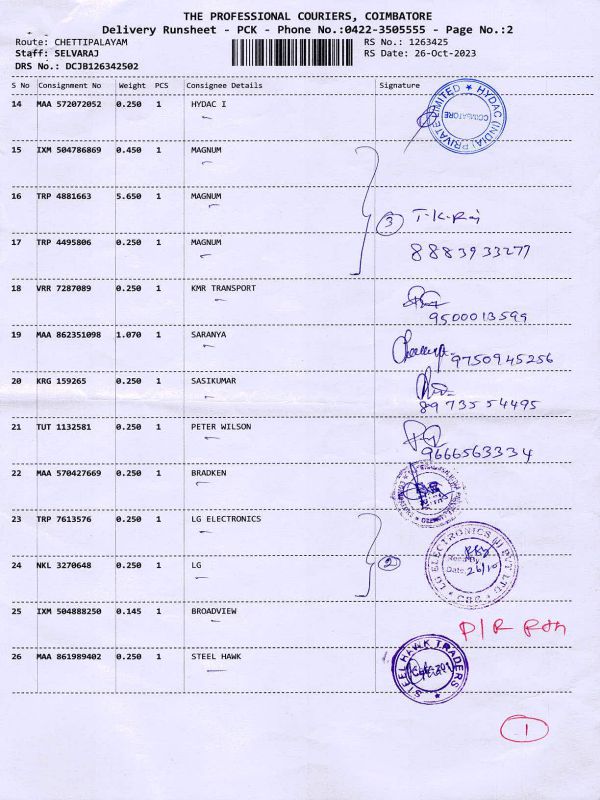 THE PROFESSIONAL COURIERS, COIMBATORE
Delivery Runsheet - PCK - Phone No.:0422-3505555 - Page No.:2
Route: CHETTIPALAYAM RS No.: 1263425
Staff: SELVARAJ RS Date: 26-Oct-2023
DRS No.: DCJB126342502
S No Consignment No Weight PCS Consignee Details Signature
14 MAA 572072052 0.250 1 HYDAC I
HYDAC (INDIA) PRIVATE LIMITED
COIMBATORE
15 IXM 504786869 0.450 1 MAGNUM
16 TRP 4881663 5.650 1 MAGNUM
3 T.K.Raj
17 TRP 4495806 0.250 1 MAGNUM
8883933277
18 VRR 7287089 0.250 1 KMR TRANSPORT
9500013599
19 MAA 862351098 1.070 1 SARANYA
9750945256
20 KRG 159265 0.250 1 SASIKUMAR
8973554495
21 TUT 1132581 0.250 1 PETER WILSON
9666563334
22 MAA 570427669 0.250 1 BRADKEN
23 TRP 7613576 0.250 1 LG ELECTRONICS
LG ELECTRONICS (I) PVT LTD
24 NKL 3270648 0.250 1 LG
2
Recd By
Date: 26/10
CBE
25 IXM 504888250 0.145 1 BROADVIEW
26 MAA 861989402 0.250 1 STEEL HAWK
STEEL HAWK TRADERS
1